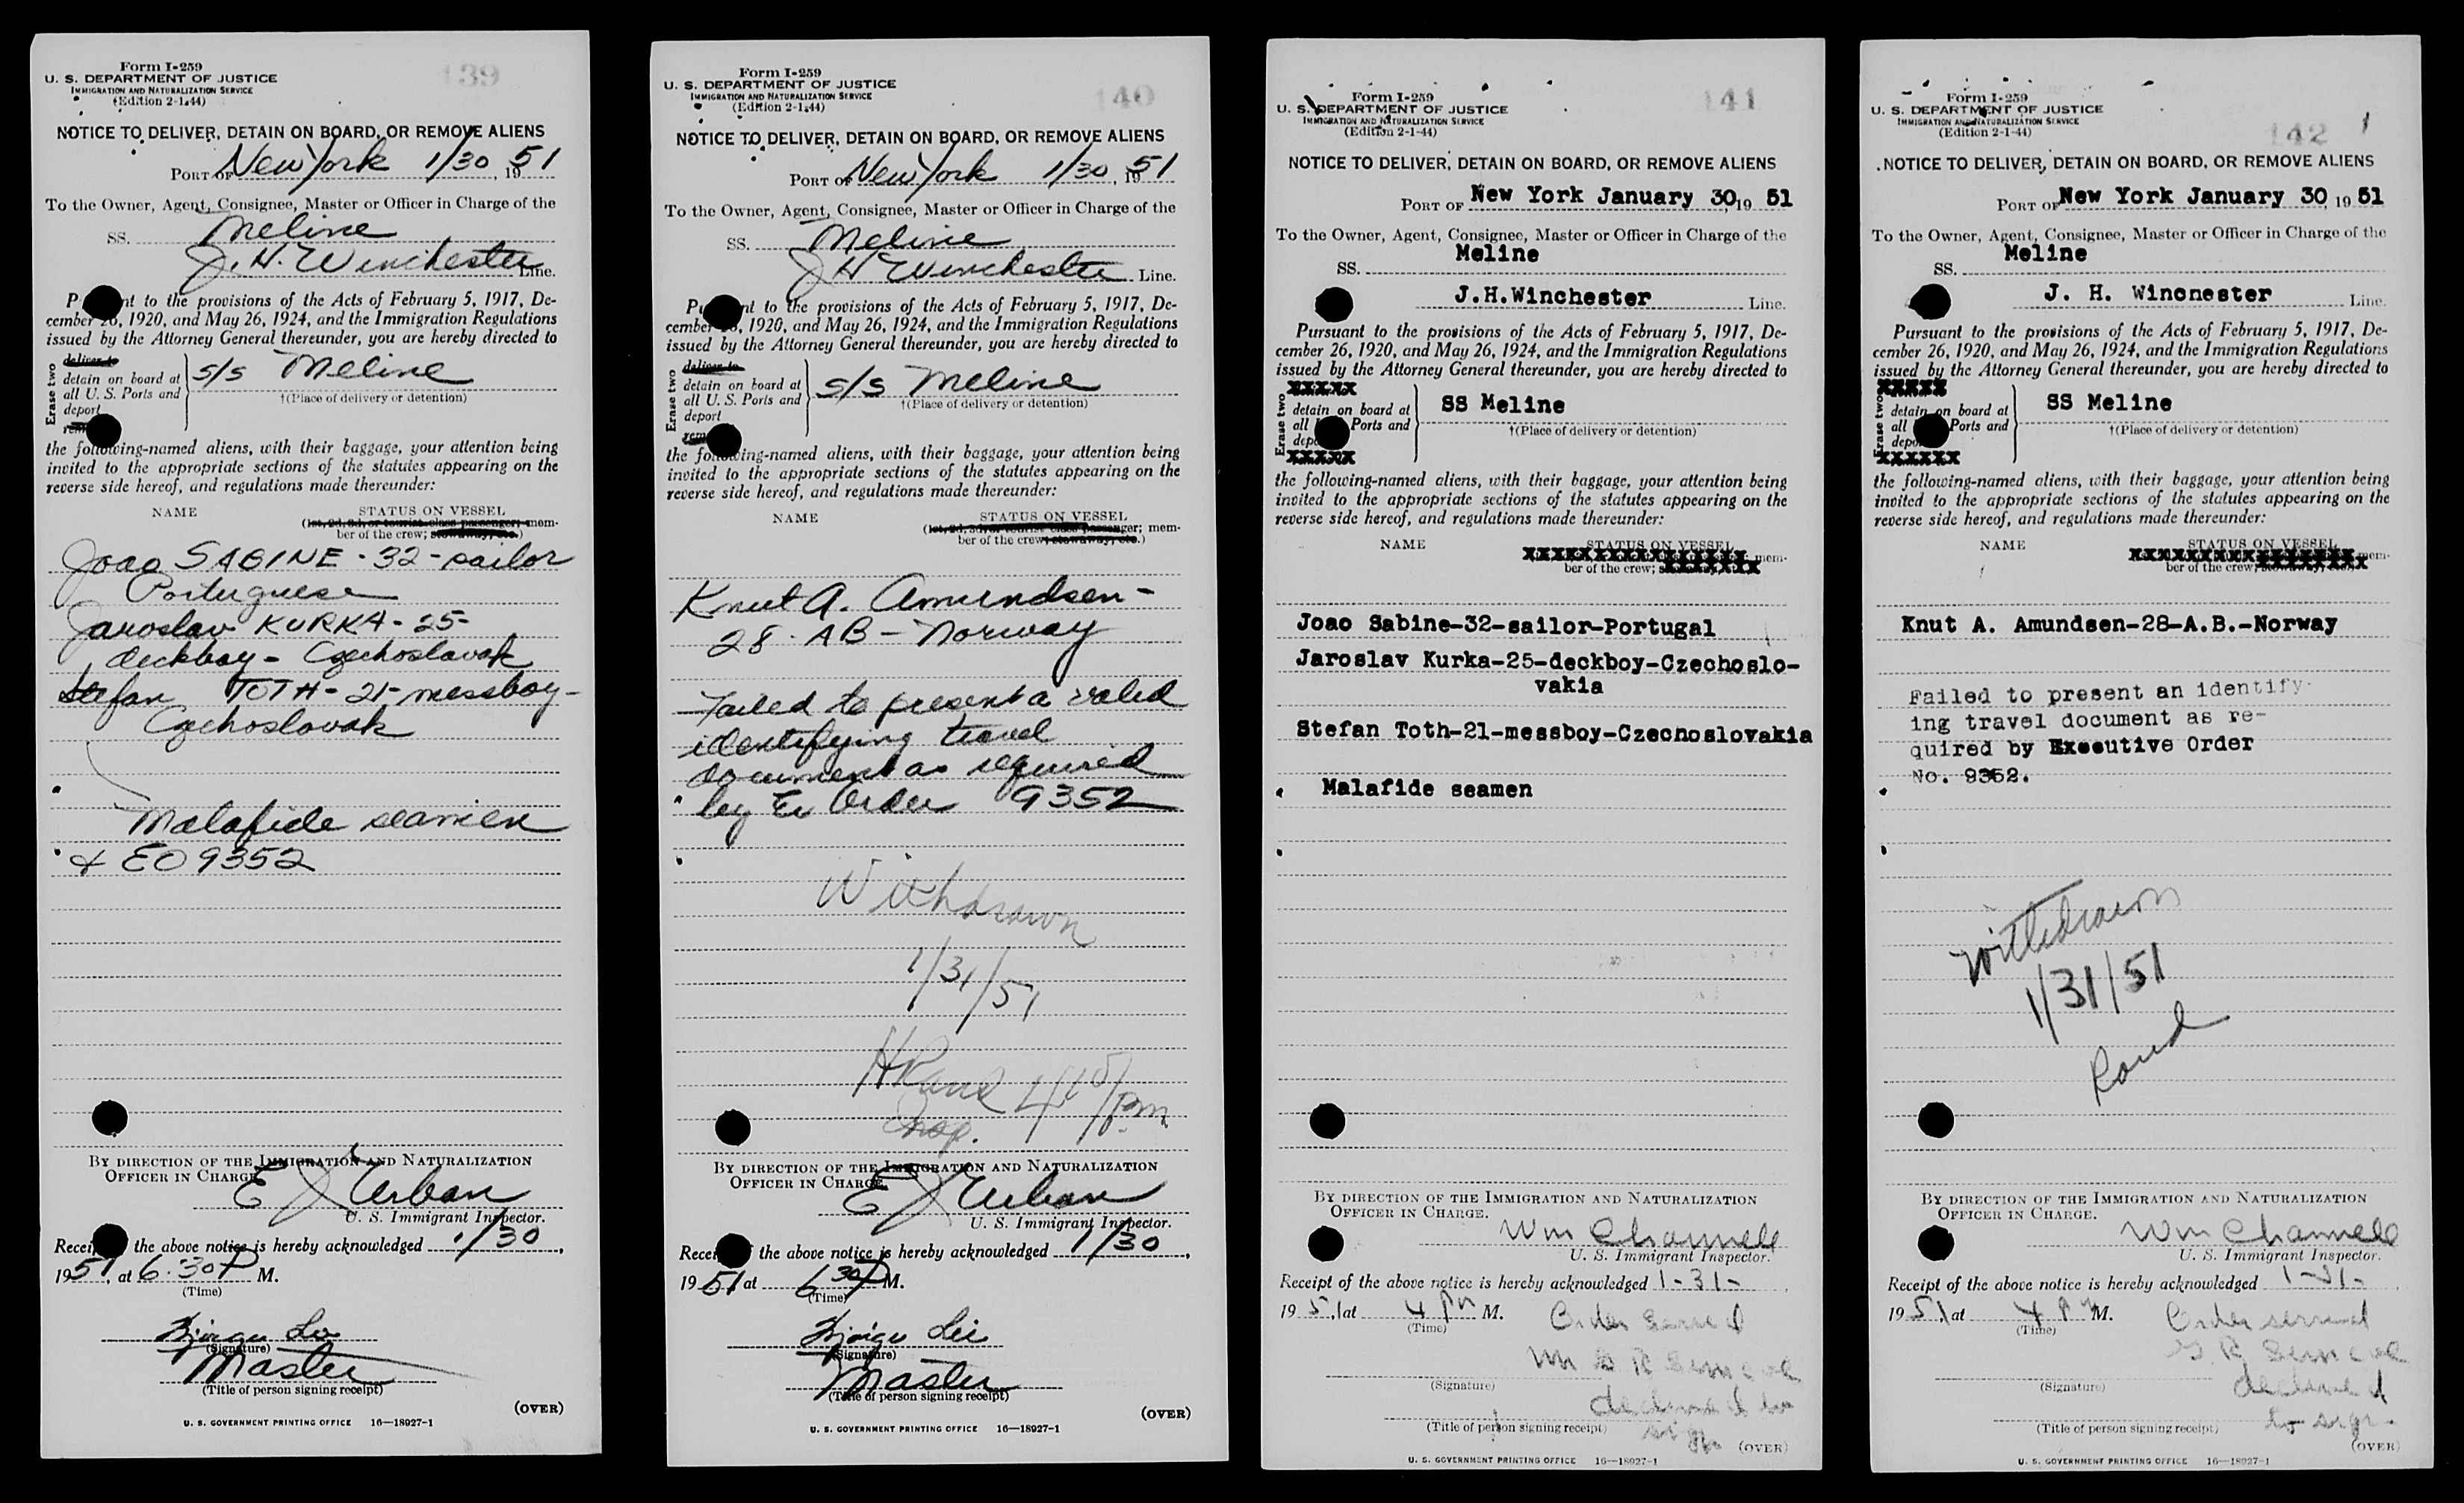 Form I-259
U. S. DEPARTMENT OF JUSTICE
IMMIGRATION AND NATURALIZATION SERVICE
(Edition 2-1-44)
139
NOTICE TO DELIVER, DETAIN ON BOARD, OR REMOVE ALIENS
PORT OF New York 1/30, 1951
To the Owner, Agent, Consignee, Master or Officer in Charge of the
SS. Meline
J. H. Winchester Line.
P nt to the provisions of the Acts of February 5, 1917, De-
cember 26, 1920, and May 26, 1924, and the Immigration Regulations
issued by the Attorney General thereunder, you are hereby directed to
Erase two
deliver to
detain on board at
all U. S. Ports and
deport
rem
s/s Meline
†(Place of delivery or detention)
the following-named aliens, with their baggage, your attention being
invited to the appropriate sections of the statutes appearing on the
reverse side hereof, and regulations made thereunder:
NAME STATUS ON VESSEL
(1st, 2d, 3d, or tourist class passenger; mem-
ber of the crew; stowaway, etc.)
Joao SABINE - 32 - sailor
Portuguese
Jaroslav KURKA - 25 -
deckboy - Czechoslovak
Stefan TOTH - 21 - messboy -
Czechoslovak
Malafide seamen
& EO 9352
BY DIRECTION OF THE IMMIGRATION AND NATURALIZATION
OFFICER IN CHARGE.
E J Urban
U. S. Immigrant Inspector.
Recei the above notice is hereby acknowledged 1/30,
1951, at 6.30 P M.
(Time)
(Signature)
Master
(Title of person signing receipt)
(OVER)
U. S. GOVERNMENT PRINTING OFFICE 16—18927-1
Form I-259
U. S. DEPARTMENT OF JUSTICE
IMMIGRATION AND NATURALIZATION SERVICE
(Edition 2-1-44)
140
NOTICE TO DELIVER, DETAIN ON BOARD, OR REMOVE ALIENS
PORT OF New York 1/30, 1951
To the Owner, Agent, Consignee, Master or Officer in Charge of the
SS. Meline
J H Winchester Line.
Pu nt to the provisions of the Acts of February 5, 1917, De-
cember 26, 1920, and May 26, 1924, and the Immigration Regulations
issued by the Attorney General thereunder, you are hereby directed to
Erase two
deliver to
detain on board at
all U. S. Ports and
deport
rem
s/s Meline
†(Place of delivery or detention)
the following-named aliens, with their baggage, your attention being
invited to the appropriate sections of the statutes appearing on the
reverse side hereof, and regulations made thereunder:
NAME STATUS ON VESSEL
(1st, 2d, 3d, or tourist class passenger; mem-
ber of the crew; stowaway, etc.)
Knut A. Amundsen -
28 - AB - Norway
Failed to present a valid
identifying travel
document as required
by Ex Order 9352
Withdrawn
1/31/51
H Rand 4 15/pm
Insp.
BY DIRECTION OF THE IMMIGRATION AND NATURALIZATION
OFFICER IN CHARGE.
E J Urban
U. S. Immigrant Inspector.
Recei the above notice is hereby acknowledged 1/30,
1951 at 6 30 P M.
(Time)
(Signature)
Master
(Title of person signing receipt)
(OVER)
U. S. GOVERNMENT PRINTING OFFICE 16—18927-1
Form I-259
U. S. DEPARTMENT OF JUSTICE
IMMIGRATION AND NATURALIZATION SERVICE
(Edition 2-1-44)
141
NOTICE TO DELIVER, DETAIN ON BOARD, OR REMOVE ALIENS
PORT OF New York January 30, 19 51
To the Owner, Agent, Consignee, Master or Officer in Charge of the
SS. Meline
J.H.Winchester Line.
Pursuant to the provisions of the Acts of February 5, 1917, De-
cember 26, 1920, and May 26, 1924, and the Immigration Regulations
issued by the Attorney General thereunder, you are hereby directed to
Erase two
xxxxx
detain on board at
all Ports and
depo
xxxxx
SS Meline
†(Place of delivery or detention)
the following-named aliens, with their baggage, your attention being
invited to the appropriate sections of the statutes appearing on the
reverse side hereof, and regulations made thereunder:
NAME STATUS ON VESSEL
mem-
ber of the crew;
Joao Sabine-32-sailor-Portugal
Jaroslav Kurka-25-deckboy-Czechoslo-
vakia
Stefan Toth-21-messboy-Czechoslovakia
Malafide seamen
BY DIRECTION OF THE IMMIGRATION AND NATURALIZATION
OFFICER IN CHARGE.
Wm Channell
U. S. Immigrant Inspector.
Receipt of the above notice is hereby acknowledged 1-31-,
1951, at 4 pm M.
(Time)
Order served
(Signature)
declined to
sign
(Title of person signing receipt)
(OVER)
U. S. GOVERNMENT PRINTING OFFICE 16—18927-1
Form I-259
U. S. DEPARTMENT OF JUSTICE
IMMIGRATION AND NATURALIZATION SERVICE
(Edition 2-1-44)
142
NOTICE TO DELIVER, DETAIN ON BOARD, OR REMOVE ALIENS
PORT OF New York January 30, 19 51
To the Owner, Agent, Consignee, Master or Officer in Charge of the
SS. Meline
J. H. Winchester Line.
Pursuant to the provisions of the Acts of February 5, 1917, De-
cember 26, 1920, and May 26, 1924, and the Immigration Regulations
issued by the Attorney General thereunder, you are hereby directed to
Erase two
xxxxx
detain on board at
all Ports and
depo
xxxxxx
SS Meline
†(Place of delivery or detention)
the following-named aliens, with their baggage, your attention being
invited to the appropriate sections of the statutes appearing on the
reverse side hereof, and regulations made thereunder:
NAME STATUS ON VESSEL
mem-
ber of the crew;
Knut A. Amundsen-28-A.B.-Norway
Failed to present an identify-
ing travel document as re-
quired by Executive Order
No. 9352.
Withdrawn
1/31/51
Rand
BY DIRECTION OF THE IMMIGRATION AND NATURALIZATION
OFFICER IN CHARGE.
Wm Channell
U. S. Immigrant Inspector.
Receipt of the above notice is hereby acknowledged 1-31-,
1951, at 4 pm M.
(Time)
Order served
(Signature)
declined
to sign.
(Title of person signing receipt)
(OVER)
U. S. GOVERNMENT PRINTING OFFICE 16—18927-1